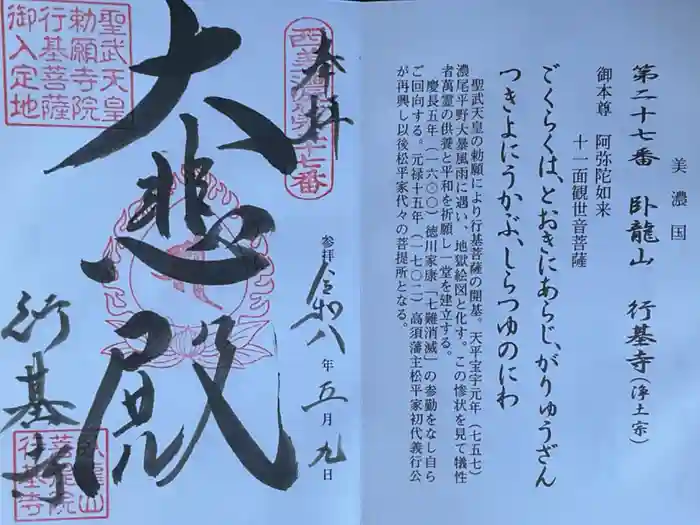 美濃国
第二十七番 臥龍山 行基寺(浄土宗)
御本尊 阿弥陀如来
十一面観世音菩薩
ごくらくは、とおきにあらじ、がりゅうざん
つきよにうかぶ、しらつゆのにわ
聖武天皇の勅願により行基菩薩の開基。天平宝字元年(七五七)
濃尾平野大暴風雨に遇い、地獄絵図と化す。この惨状を見て犠牲
者萬霊の供養と平和を祈願し一堂を建立する。
慶長五年(一六〇〇)徳川家康「七難消滅」の参勤をなし自ら
ご回向する。元禄十五年(一七〇二)高須藩主松平家初代義行公
が再興し以後松平家代々の菩提所となる。
奉拝
西美濃第二十七番
参拝 令和八年五月九日
大悲殿
聖武天皇
勅願寺院
行基菩薩
御入定地
行基寺
臥龍山
菩提院
行基寺